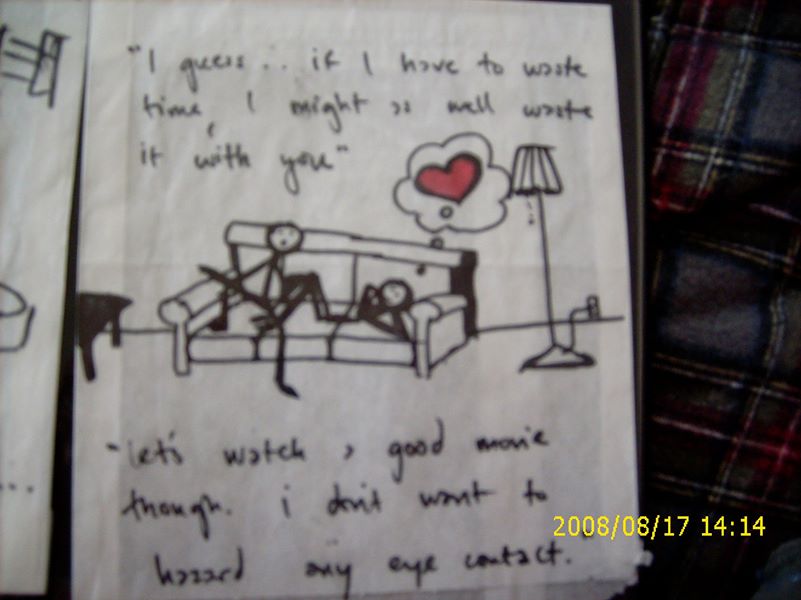 "I guess... if I have to waste
time, I might as well waste
it with you"
"let's watch a good movie
though. i don't want to
hazard any eye contact."
...
2008/08/17 14:14